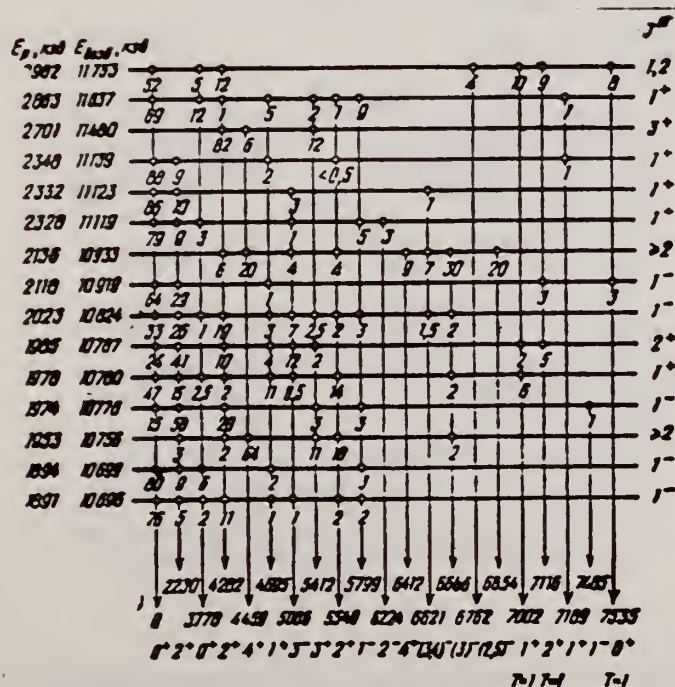 E_p, кэв E_возб, кэв J^π
2982 11753 1,2
52 5 12 4 10 9 8
2863 11637 1⁺
69 12 1 5 2 7 9 1
2701 11480 3⁺
82 6 12
2348 11139 1⁺
88 9 2 <0,5 1
2332 11123 1⁺
86 10 3 1
2328 11119 1⁺
79 9 3 1 5 3
2136 10933 ≥2
6 20 4 4 9 7 30 20
2118 10919 1⁻
64 29 1 3 3
2023 10824 1⁻
33 26 1 19 3 7 2,5 2 3 1,5 2
1985 10787 2⁺
24 41 10 4 12 2 2 5
1978 10780 1⁺
47 15 2,5 2 11 0,5 14 2 6
1974 10776 1⁻
15 50 28 3 3 1
1953 10756 ≥2
3 2 64 11 18 2
1894 10699 1⁻
80 9 6 2 3
1891 10696 1⁻
76 5 2 11 1 1 2 2
2230 4282 4695 5412 5799 6412 6666 6854 7116 7485
0 3778 4459 5006 5548 6224 6621 6762 7002 7189 7535
0⁺ 2⁺ 0⁺ 2⁺ 4⁺ 1⁺ 3⁻ 3⁺ 2⁺ 1⁻ 2⁻ 4⁺ (3,4)⁻ (3)⁻ (2,5)⁻ 1⁺ 2⁺ 1⁺ 1⁻ 0⁺
T=1 T=1 T=1